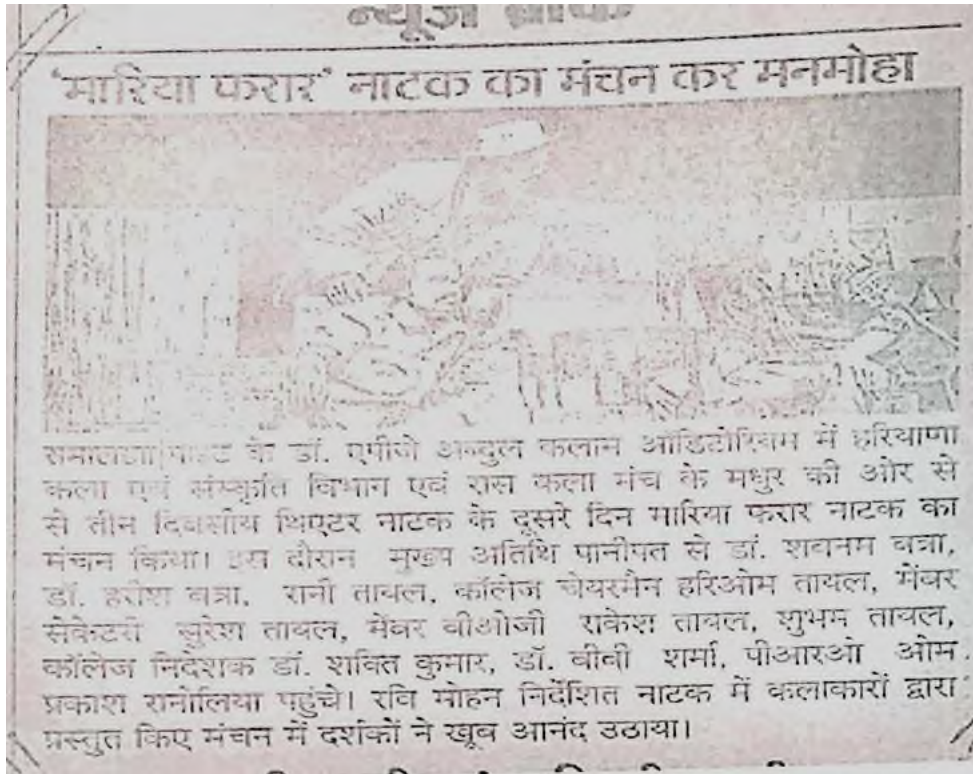 न्यूज ब्रीफ
'मारिया फरार' नाटक का मंचन कर मनमोहा
समालखा|पाइट के डॉ. एपीजे अब्दुल कलाम ऑडिटोरियम में हरियाणा
कला एवं संस्कृति विभाग एवं रास कला मंच के मधुर की ओर से
से तीन दिवसीय थिएटर नाटक के दूसरे दिन मारिया फरार नाटक का
मंचन किया। इस दौरान मुख्य अतिथि पानीपत से डॉ. शबनम बत्रा,
डॉ. हरीश बत्रा, रानी तायल, कॉलेज चेयरमैन हरिओम तायल, मेंबर
सेकेटरी सुरेश तायल, मेंबर बीओजी राकेश तायल, शुभम तायल,
कॉलेज निदेशक डॉ. शक्ति कुमार, डॉ. बीबी शर्मा, पीआरओ ओम
प्रकाश रानोलिया पहुंचे। रवि मोहन निर्देशित नाटक में कलाकारों द्वारा
प्रस्तुत किए मंचन में दर्शकों ने खूब आनंद उठाया।